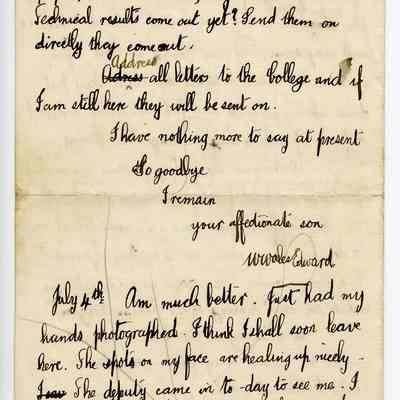 Technical results come out yet? Send them on
directly they come out.
Address
Adress all letters to the College and if
I am still here they will be sent on.
I have nothing more to say at present
So goodbye
I remain
your affectionate son
Edward
July 4th. Am much better. Just had my
hands photographed. I think I shall soon leave
here. The spots on my face are healing up nicely.
The deputy came in to-day to see me. I